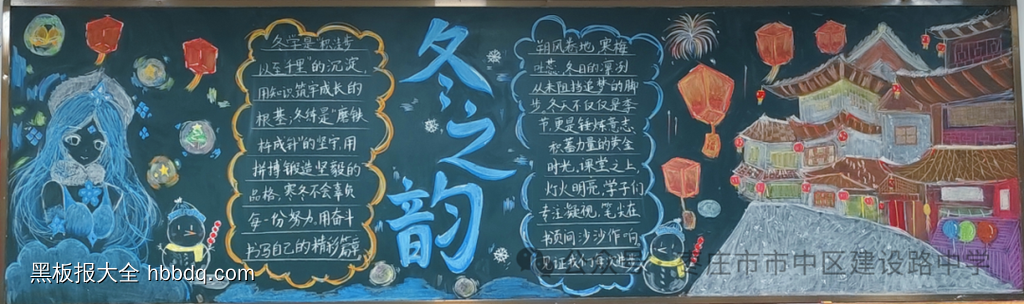 冬学是积洼步
以至千里"的沉淀,
用知识筑牢成长的
根基;冬练是"磨铁
杵成针"的坚守,用
拼搏锻造坚毅的
品格,寒冬不会辜负
每一份努力,用奋斗
书写自己的精彩篇章
冬之韵
朔风卷地,寒梅
吐蕊,冬日的凛冽
从未阻挡逐梦的脚
步,冬天不仅仅是季
节,更是锤炼意志、
积蓄力量的黄金
时光,课堂之上,
灯火明亮,学子们
专注凝视,笔尖在
书页间沙沙作响,
见证我们
公众号 枣庄市市中区建设路中学
黑板报大全 hbbdq.com